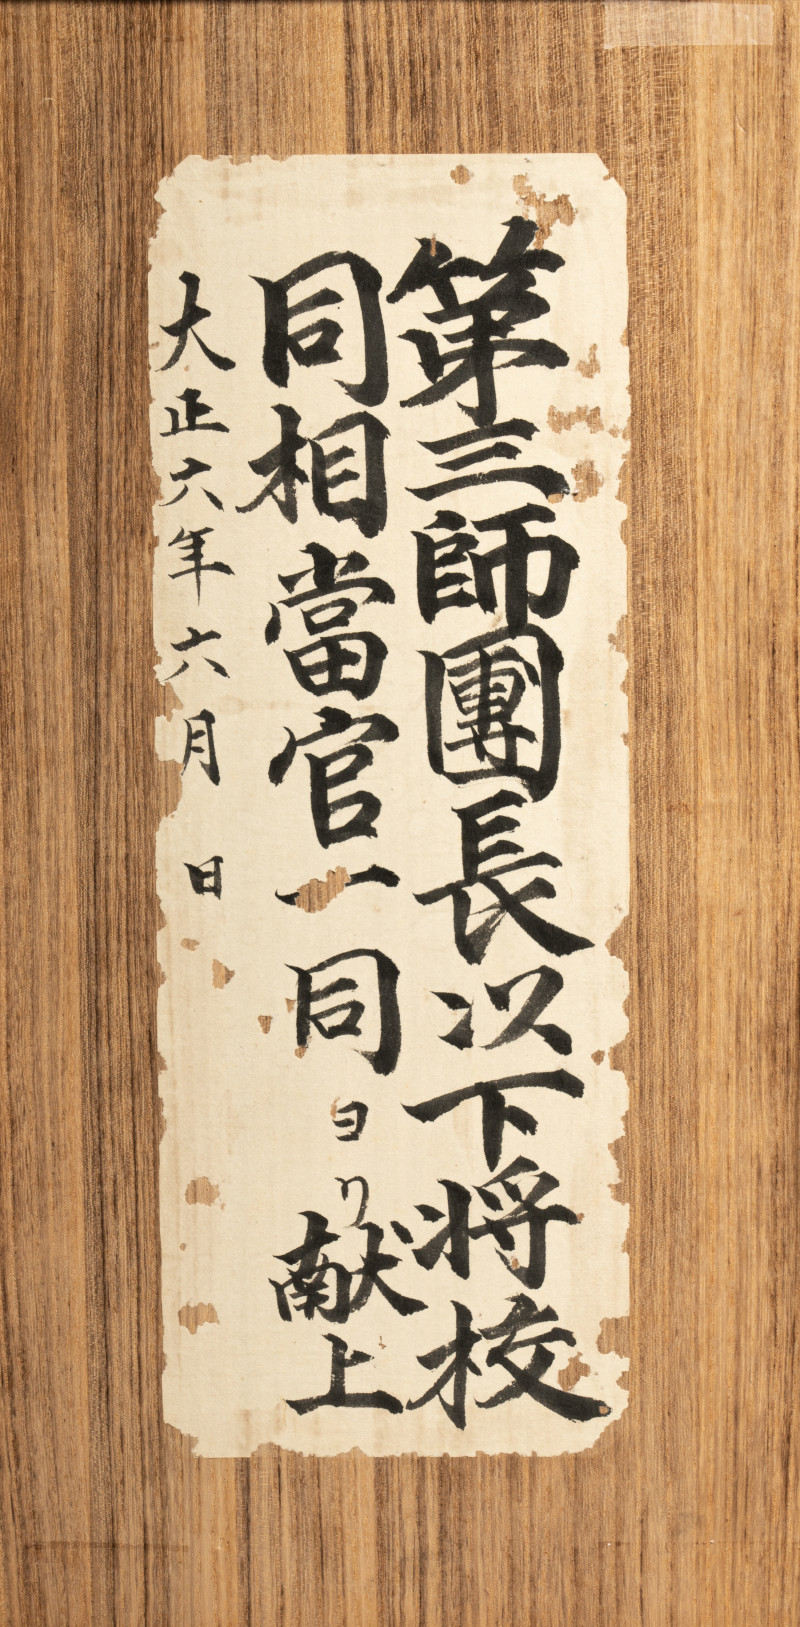 第三師團長以下将校
同相當官一同ヨリ献上
大正六年六月 日